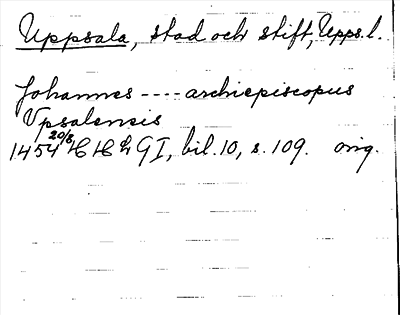 Uppsala, stad och stift, Upps.l.
Johannes ---- archiepiscopus
Vpsalensis
1454 20/8 HH h G I, bil. 10, s. 109. orig.